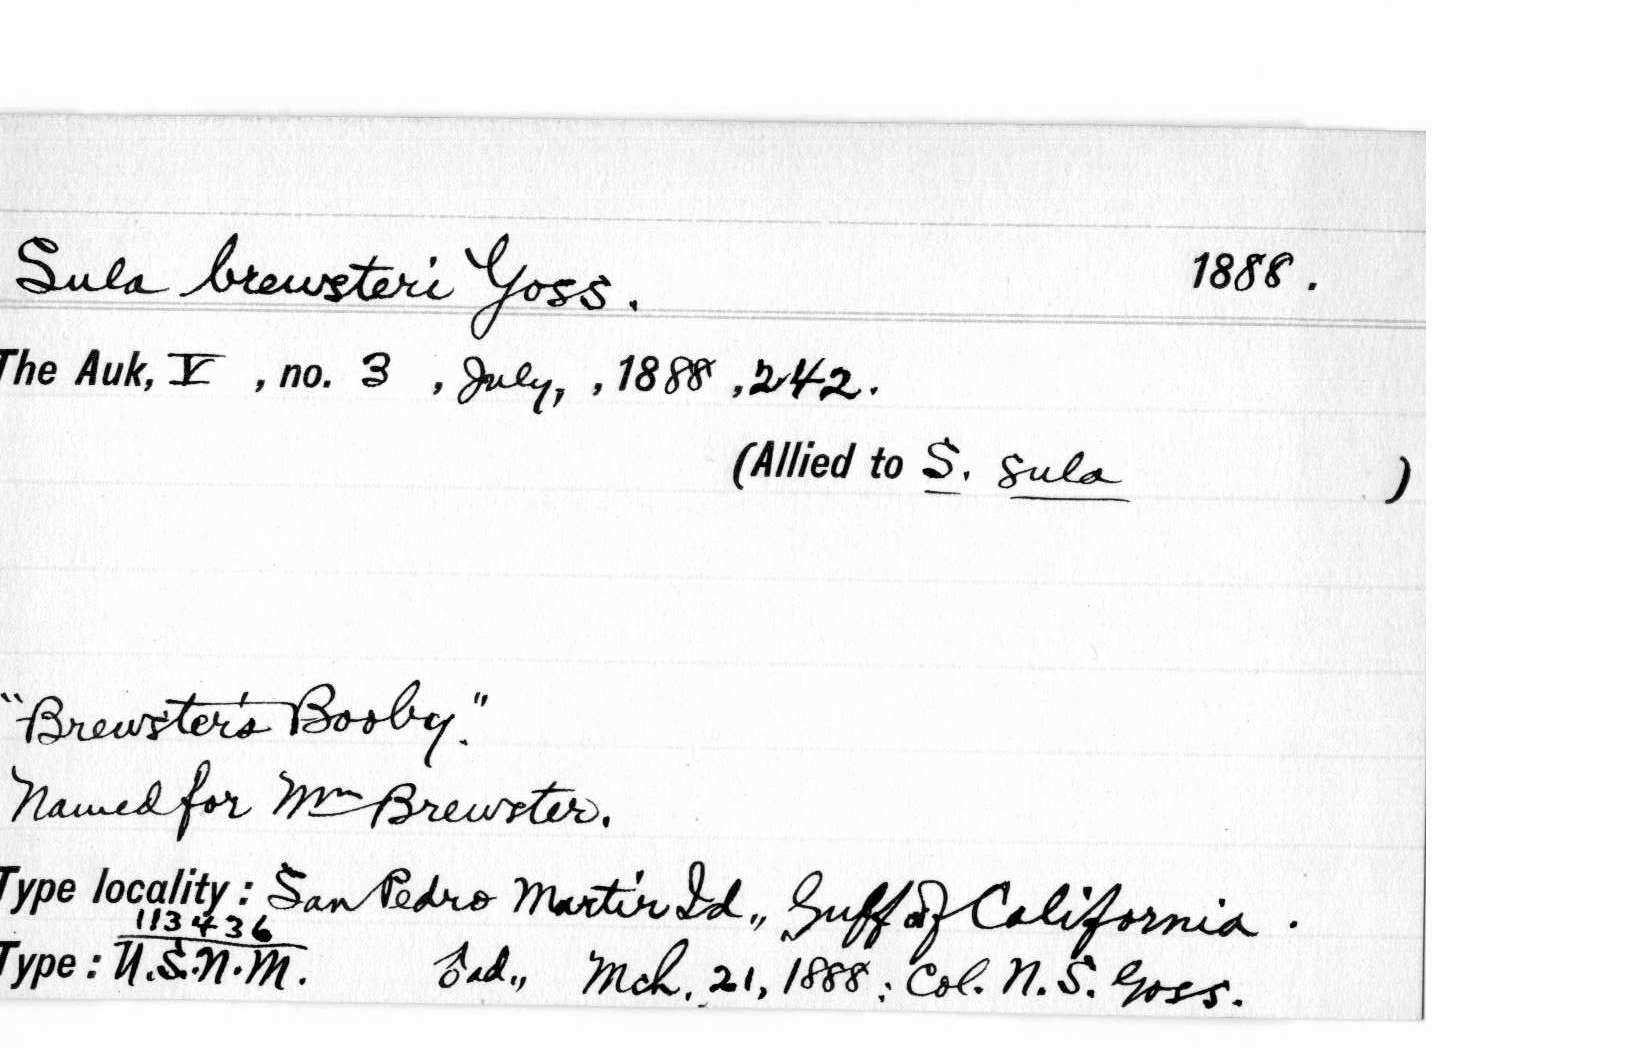 Sula brewsteri Goss. 1888.
The Auk, V , no. 3 , July, , 1888 , 242.
(Allied to S. sula )
"Brewster's Booby."
Named for Wm Brewster.
Type locality: San Pedro Martir Id., Gulf of California.
113436
Type: U.S.N.M. ad., Mch. 21, 1888; Col. N. S. Goss.